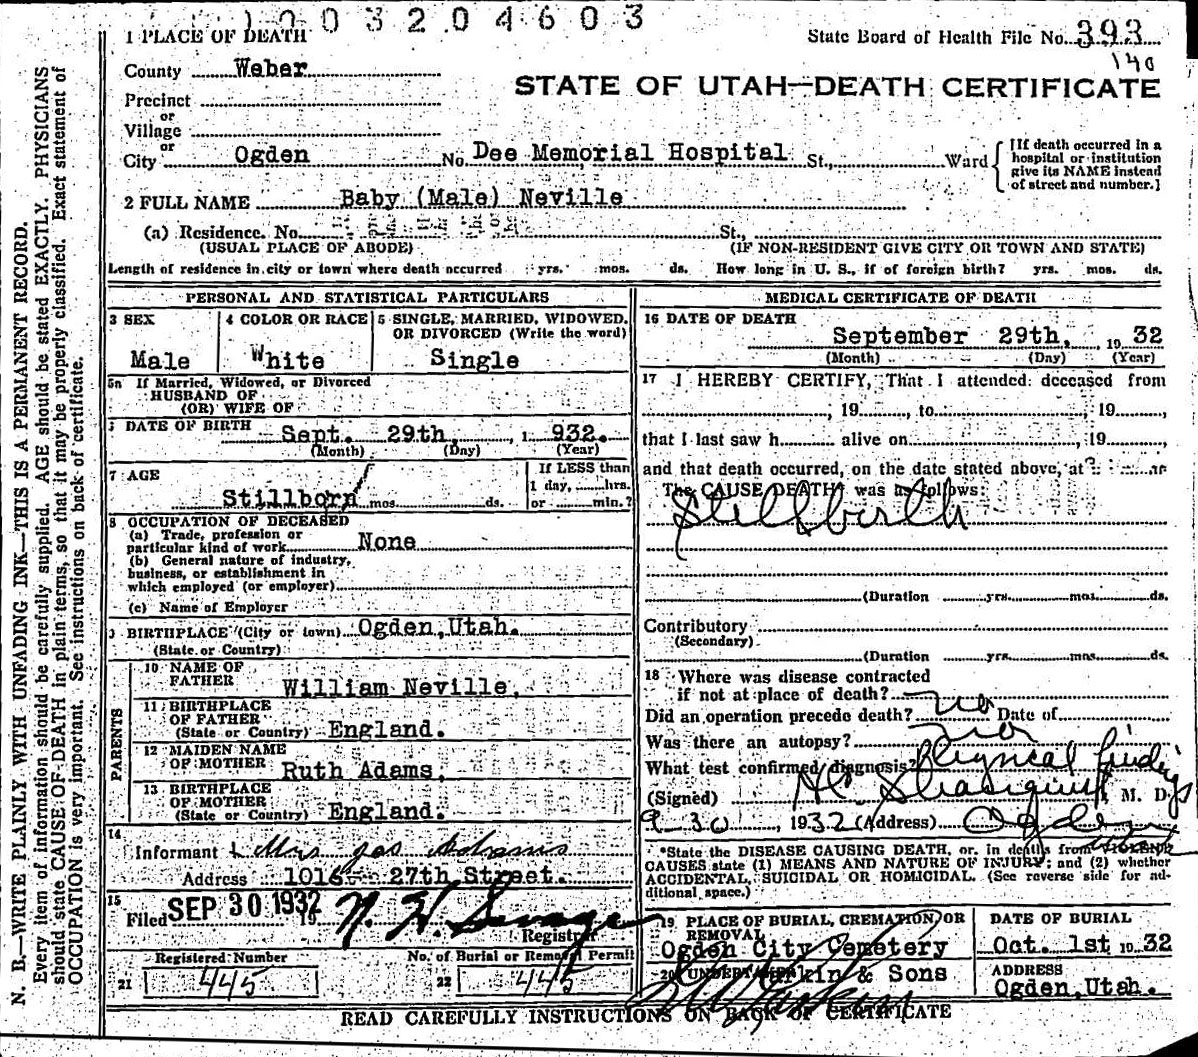 1003204603
1 PLACE OF DEATH
State Board of Health File No. 393
140
County Weber
STATE OF UTAH—DEATH CERTIFICATE
Precinct
or
Village
or
City Ogden No. Dee Memorial Hospital St., Ward
[If death occurred in a
hospital or institution
give its NAME instead
of street and number.]
2 FULL NAME Baby (Male) Neville
(a) Residence. No. St.,
(USUAL PLACE OF ABODE) (IF NON-RESIDENT GIVE CITY OR TOWN AND STATE)
Length of residence in city or town where death occurred yrs. mos. ds. How long in U. S., if of foreign birth? yrs. mos. ds.
PERSONAL AND STATISTICAL PARTICULARS
3 SEX
Male
4 COLOR OR RACE
White
5 SINGLE, MARRIED, WIDOWED,
OR DIVORCED (Write the word)
Single
5a If Married, Widowed, or Divorced
HUSBAND OF
(OR) WIFE OF
DATE OF BIRTH Sept. 29th, 1932.
(Month) (Day) (Year)
7 AGE
Stillborn mos. ds.
If LESS than
1 day, hrs.
or min.?
8 OCCUPATION OF DECEASED
(a) Trade, profession or
particular kind of work None
(b) General nature of industry,
business, or establishment in
which employed (or employer)
(c) Name of Employer
9 BIRTHPLACE (City or town) Ogden, Utah.
(State or Country)
PARENTS
10 NAME OF
FATHER William Neville.
11 BIRTHPLACE
OF FATHER
(State or Country) England.
12 MAIDEN NAME
OF MOTHER Ruth Adams.
13 BIRTHPLACE
OF MOTHER
(State or Country) England.
14
Informant Mrs Jos Adams
Address 1016- 27th Street.
15
Filed SEP 30 1932 19 N. H. Savage
Registrar
Registered Number
21 445
No. of Burial or Removal Permit
22 445
MEDICAL CERTIFICATE OF DEATH
16 DATE OF DEATH
September 29th, 1932
(Month) (Day) (Year)
17 I HEREBY CERTIFY, That I attended deceased from
, 19 , to , 19 ,
that I last saw h alive on , 19
and that death occurred, on the date stated above, at
The CAUSE DEATH was as follows:
Stillbirth
(Duration yrs. mos. ds.
Contributory
(Secondary)
(Duration yrs. mos. ds.
18 Where was disease contracted
if not at place of death?
Did an operation precede death? no Date of
Was there an autopsy? no
What test confirmed diagnosis? Physical findings
(Signed) M. D.
9-30, 1932 (Address) Ogden
*State the DISEASE CAUSING DEATH, or, in deaths from VIOLENT
CAUSES state (1) MEANS AND NATURE OF INJURY; and (2) whether
ACCIDENTAL, SUICIDAL OR HOMICIDAL. (See reverse side for ad-
ditional space.)
19 PLACE OF BURIAL, CREMATION, OR
REMOVAL
Ogden City Cemetery
DATE OF BURIAL
Oct. 1st 1932
20 UNDERTAKER Larkin & Sons
ADDRESS
Ogden, Utah.
READ CAREFULLY INSTRUCTIONS ON BACK OF CERTIFICATE
N. B.—WRITE PLAINLY WITH UNFADING INK—THIS IS A PERMANENT RECORD.
Every item of information should be carefully supplied. AGE should be stated EXACTLY. PHYSICIANS
should state CAUSE OF DEATH in plain terms, so that it may be properly classified. Exact statement of
OCCUPATION is very important. See instructions on back of certificate.